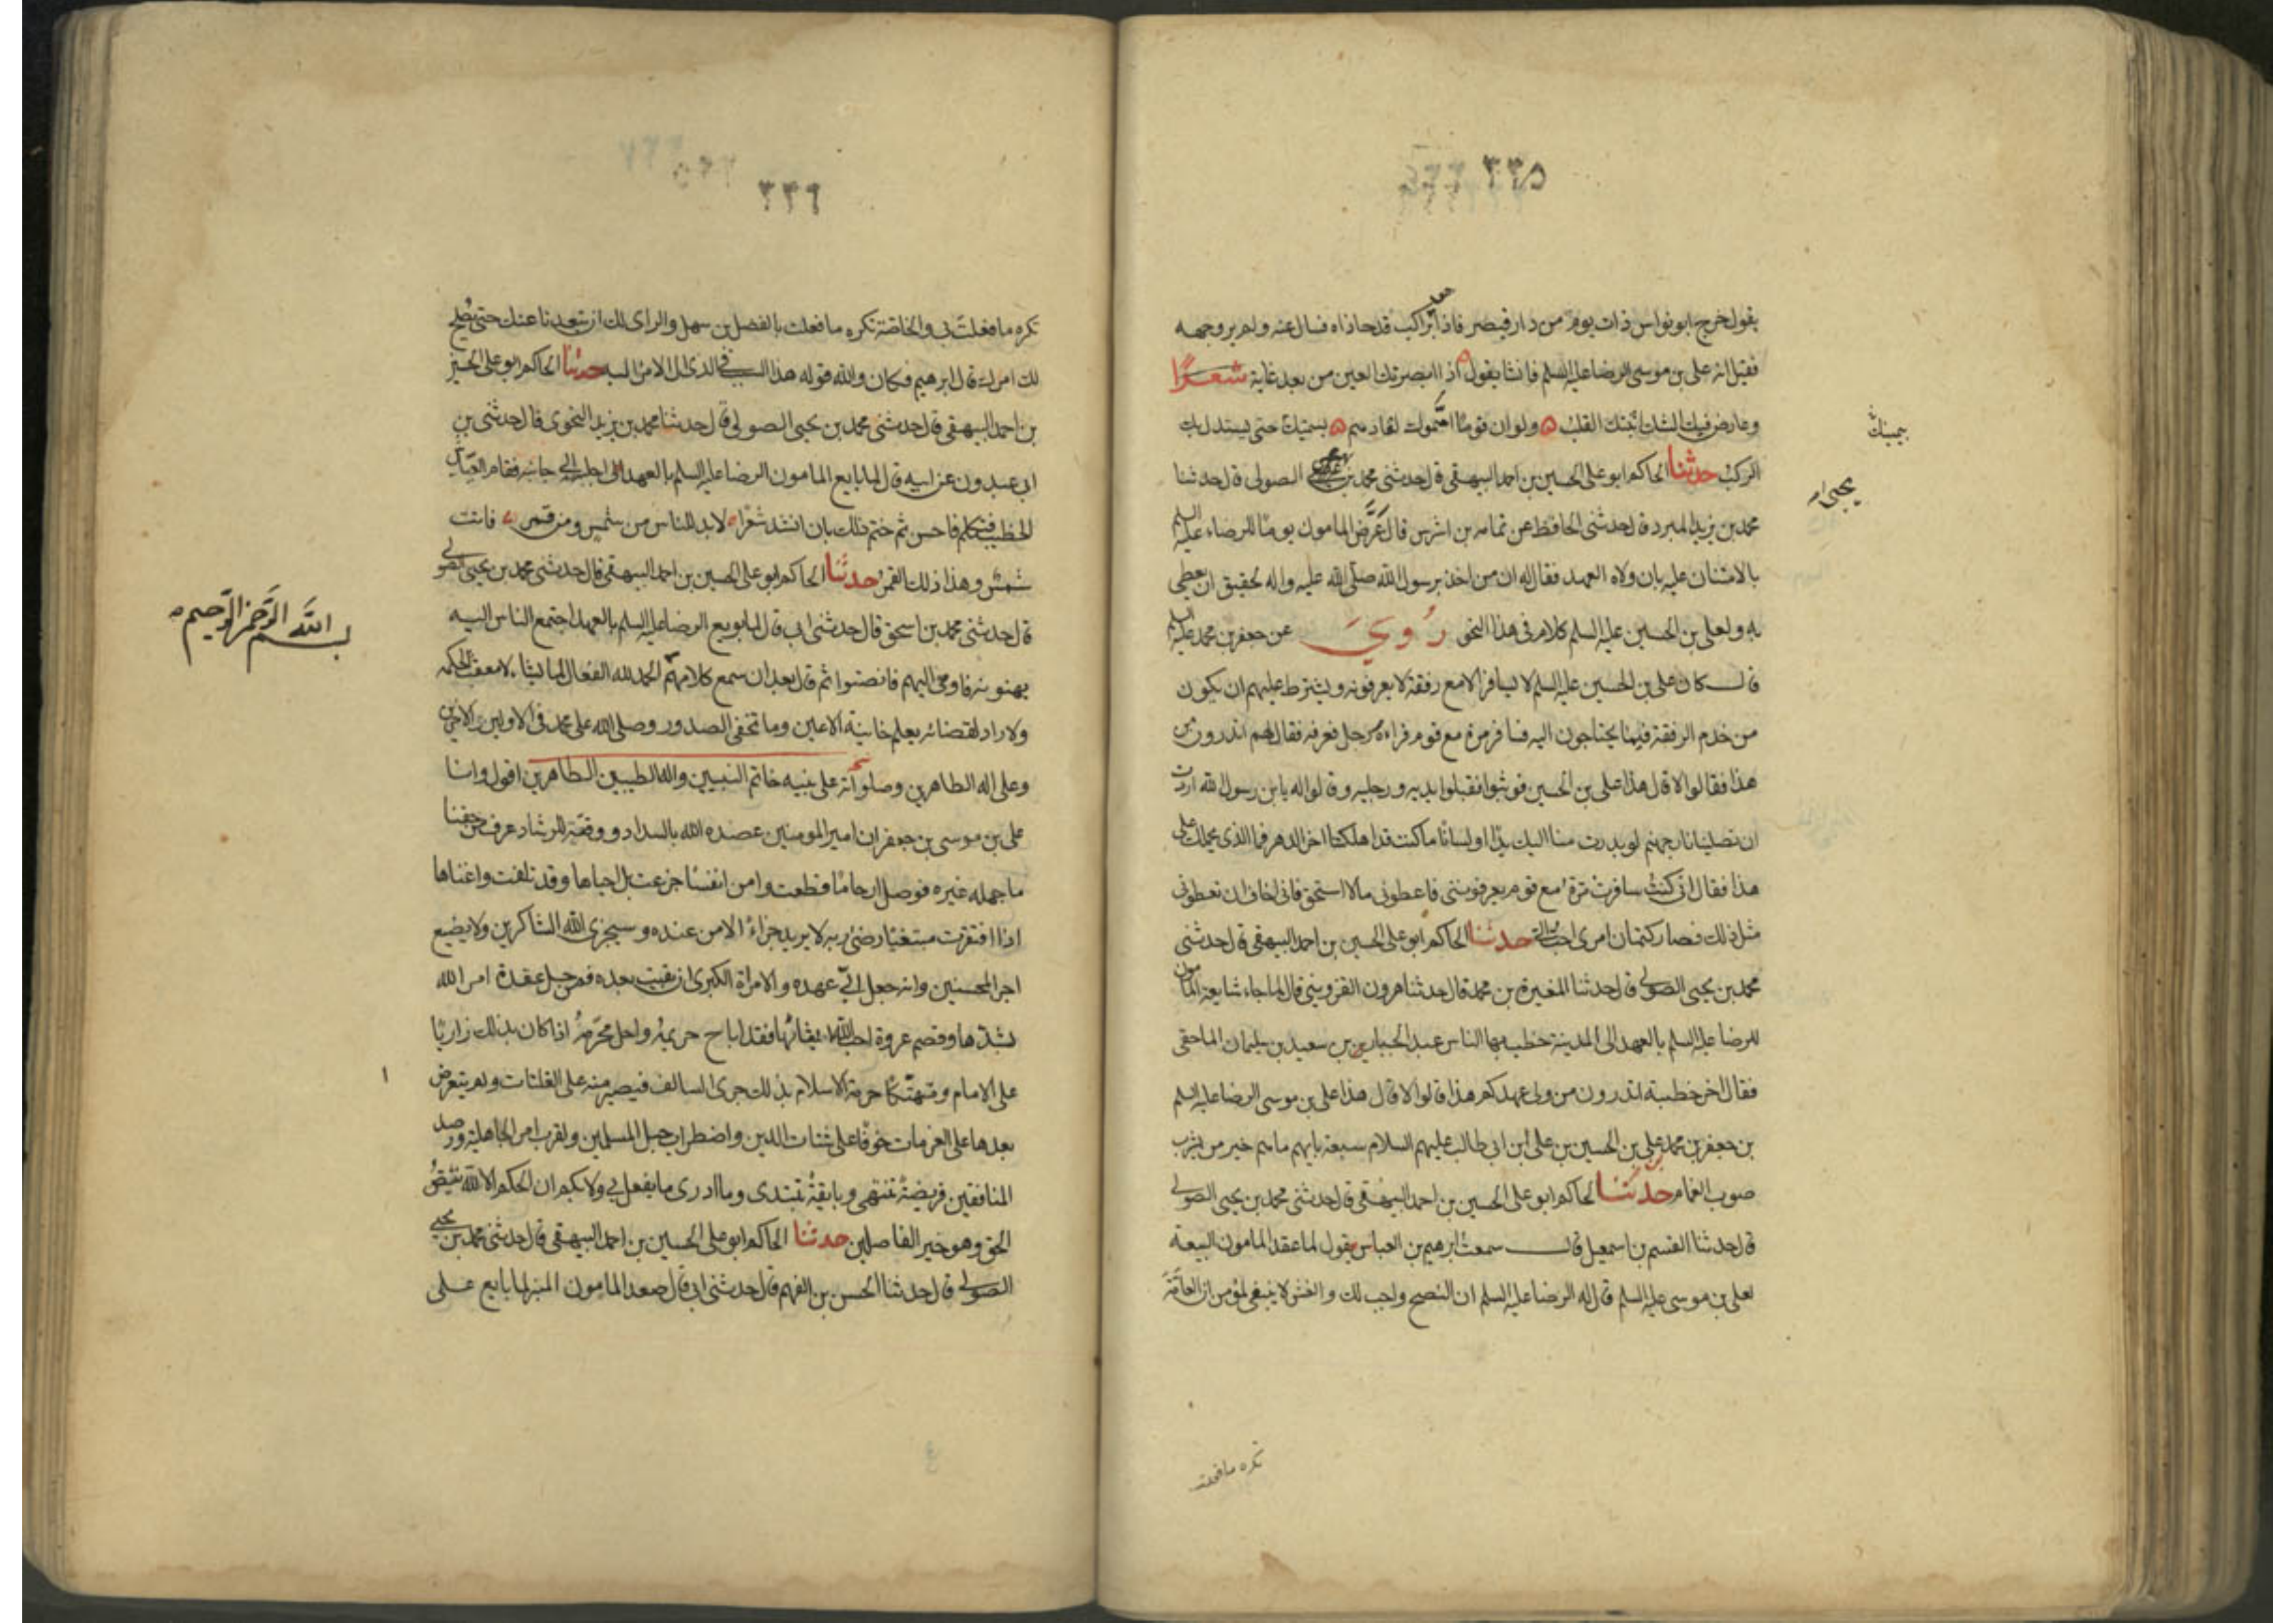 ٣٣٥
يقول خرج ابو نواس ذات يوم من دار فبصر فاذا براكب قد حاذاه فسال عنه ولم ير وجهه
فقيل انه على بن موسى الرضا عليه السلم فانشا يقول اذا ابصرتك العين من بعد غاية شعرًا
وعارض فيك الشك اثبتك القلب ولو ان قومًا امموك لقادهم بسمتك حتى يستدل بك
نسيمك
الركب حدثنا الحاكم ابو على الحسين بن احمد البيهقى قال حدثنى محمد بن الصولى قال حدثنا
يحيى
محمد بن يزيد المبرد قال حدثنى الحافظ عن ثمامه بن اشرس قال عرّض المامون يومًا للرضاء عليه السلم
بالامتنان عليه بان ولاه العهد فقال له ان من اخذ برسول الله صلّى الله عليه واله لحقيق ان يعطى
به ولعلى بن الحسين عليه السلم كلام فى هذا النحو رُوِيَ عن جعفر بن محمد عليه السلم
قال كان على بن الحسين عليه السلم لا يسافر الا مع رفقة لا يعرفونه ويشترط عليهم ان يكون
من خدم الرفقة فيما يحتاجون اليه فسافر مرة مع قوم فراه رجل فعرفه فقال لهم اتدرون من
هذا فقالوا لا قال هذا على بن الحسين فوثبوا فقبلوا يديه ورجليه وقالوا له يابن رسول الله اردت
ان تصلينا نار جهنم لو بدرت منا اليك يدًا او لسانًا ما كنت قد اهلكتنا اخر الدهر فما الذى يحملك على
هذا فقال انى كنت سافرت مرة مع قوم يعرفوننى فاعطونى ما لا استحق فانى اخاف ان تعطونى
مثل ذلك فصار كتمان امرى احب الىّ حدثنا الحاكم ابو على الحسين بن احمد البيهقى قال حدثنى
محمد بن يحيى الصولى قال حدثنا المغيرة بن محمد قال حدثنا هرون القزوينى قال لما جاء شا بيعة المامون
للرضا عليه السلم بالعهد الى المدينة خطب بها الناس عبد الجبار بن سعيد بن سليمان الماحقى
فقال اخر خطبته اتدرون من ولى عهدكم هذا قالوا لا قال هذا على بن موسى الرضا عليه السلم
بن جعفر بن محمد على بن الحسين بن على ابن ابى طالب عليهم السلام سبعة بايهم ما هم خير من يشرب
صوب الغمام حدثنا الحاكم ابو على الحسين بن احمد البيهقى قال حدثنى محمد بن يحيى الصولى
قال حدثنا القسم بن اسمعيل قال سمعت ابرهيم بن العباس يقول لما عقد المامون البيعة
لعلى بن موسى عليه السلم قال له الرضا عليه السلم ان النصح واجب لك والغش لا ينبغى لمؤمن ان العامّة
تكره ما فعلت
٣٣٦
تكره ما فعلت بى والخاصّة تكره ما فعلت بالفضل بن سهل والراى لك ان تبعدنا عنك حتى يصلح
لك امرك قال ابرهيم فكان والله قوله هذا السبب فى الذى ال الامر اليه حدثنا الحاكم ابو على الحسين
بن احمد البيهقى قال حدثنى محمد بن يحيى الصولى قال حدثنا محمد بن يزيد النحوى قال حدثنى بن
ابى عبدون عن ابيه قال لما بايع المامون الرضا عليه السلم بالعهد اجلسه الى جانبه فقام العباس
الخطيب فتكلم فاحسن ثم ختم ذلك بان انشد شعرًا لابد للناس من شمس ومن قمر فانت
شمس وهذا ذلك القمر حدثنا الحاكم ابو على الحسين بن احمد البيهقى قال حدثنى محمد بن يحيى الصولى
قال حدثنى محمد بن اسحق قال حدثنى ابى قال لما بويع الرضا عليه السلم بالعهد اجتمع الناس اليه
بسم الله الرّحمن الرّحيم
يهنونه فاومى اليهم فانصتوا ثم قال بعد ان سمع كلامهم الحمد لله الفعال لما يشا لا معقب لحكمه
ولا راد لقضائه يعلم خاينة الاعين وما تخفى الصدور وصلى الله على محمد فى الاولين والاخرين
وعلى اله الطاهرين وصلواته على نبيه خاتم النبيين واله الطيبين الطاهرين اقول وانا
على بن موسى بن جعفر ان امير المومنين عضده الله بالسداد ووفقه للرشاد عرف من حقنا
ما جهله غيره فوصل ارحامًا قطعت وامن انفسًا جزعت بل احياها وقد تلفت واغناها
اذا افتقرت مبتغيًا رضى ربه لا يريد جزاءً الا من عنده وسيجزى الله الشاكرين ولا يضيع
اجر المحسنين وانه جعل الىّ عهده والامراة الكبرى ان بقيت بعده فمن حل عقدة امر الله
بشدّها وقصم عروة احب الله ايثاقها فقد اباح حريمه واحل محرّمه اذا كان بذلك زاريًا
على الامام ومتهتّكًا حرمة الاسلام بذلك جرى السالف فيصير منه على الفلتات ولم يتعرض
بعدها على العزمات خوفًا على شتات الدين واضطراب حبل المسلمين ولقرب امر الجاهلية ورصد
المنافقين فريضة تنتهى وبايقة تبتدى وما ادرى ما يفعل بى ولا بكم ان الحكم الا لله يقصّ
الحق وهو خير الفاصلين حدثنا الحاكم ابو على الحسين بن احمد البيهقى قال حدثنى محمد بن يحيى
الصولى قال حدثنا الحسن بن الفهم قال حدثنى ابى قال صعد المامون المنبر لما بايع على